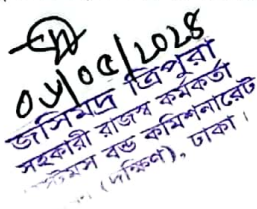 ০৬/০৫/2024
জসিমদ্দ ত্রিপুরা
সহকারী রাজস্ব কর্মকর্তা
কাস্টমস বন্ড কমিশনারেট
(দক্ষিণ), ঢাকা।